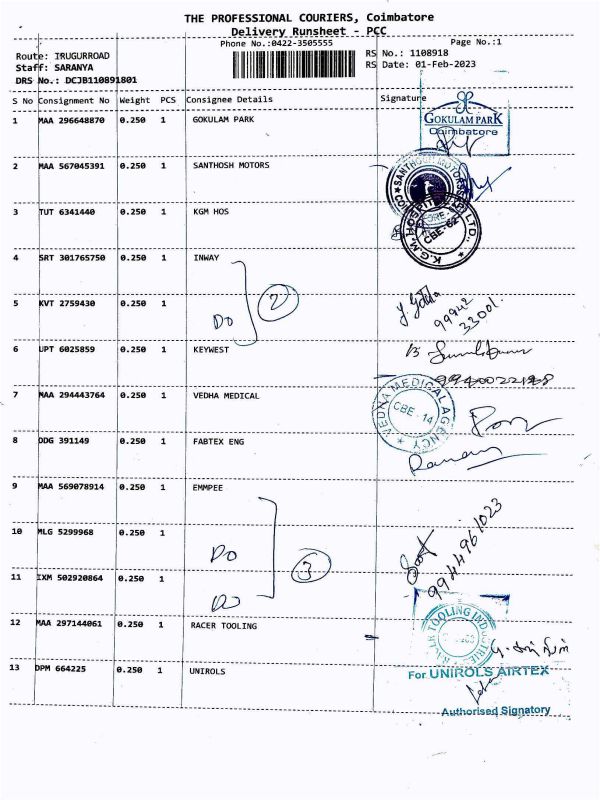 THE PROFESSIONAL COURIERS, Coimbatore
Delivery Runsheet - PCC
Phone No.:0422-3505555 Page No.:1
Route: IRUGURROAD RS No.: 1108918
Staff: SARANYA RS Date: 01-Feb-2023
DRS No.: DCJB110891801
S No Consignment No Weight PCS Consignee Details Signature
1 MAA 296648870 0.250 1 GOKULAM PARK
GOKULAM PARK
Coimbatore
2 MAA 567045391 0.250 1 SANTHOSH MOTORS
3 TUT 6341440 0.250 1 KGM HOS
K.G.M.HOSPITAL
CBE-62
4 SRT 301765750 0.250 1 INWAY
2
5 KVT 2759430 0.250 1 Do
99942
33001
6 UPT 6025859 0.250 1 KEYWEST
7 MAA 294443764 0.250 1 VEDHA MEDICAL
VEDHA MEDICAL AGENCY
CBE - 14
8 DDG 391149 0.250 1 FABTEX ENG
9 MAA 569078914 0.250 1 EMMPEE
10 MLG 5299968 0.250 1
Do
3
9944961023
11 IXM 502920864 0.250 1
Do
12 MAA 297144061 0.250 1 RACER TOOLING
13 DPM 664225 0.250 1 UNIROLS
For UNIROLS AIRTEX
Authorised Signatory